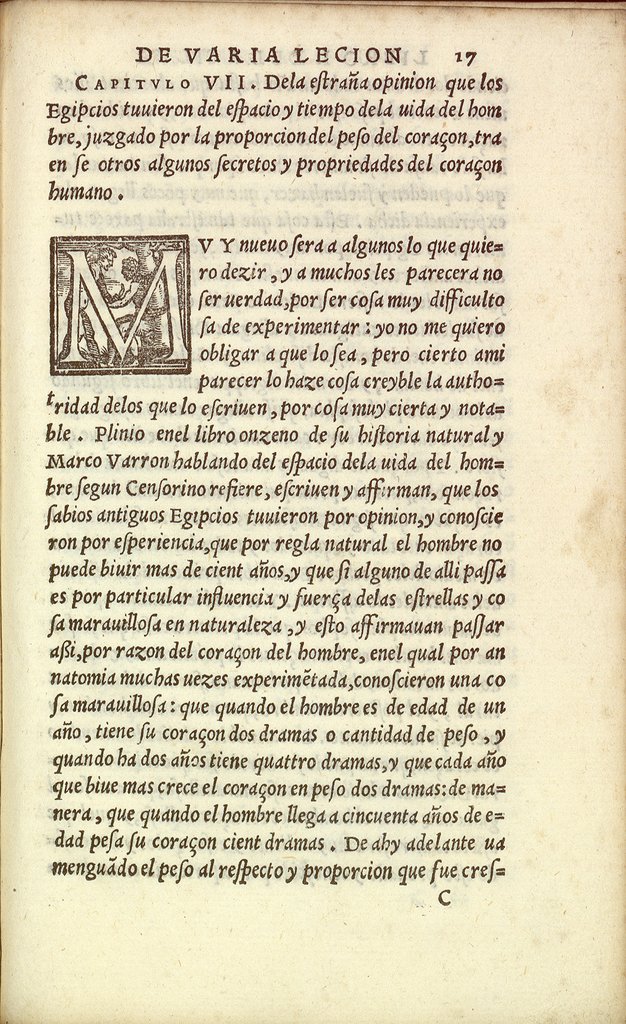 DE VARIA LECION 17
CAPITVLO VII. Dela eſtraña opinion que los
Egipcios tuuieron del eſpacio y tiempo dela uida del hom
bre, juzgado por la proporcion del peſo del coraçon, tra
en ſe otros algunos ſecretos y propriedades del coraçon
humano.
MVY nueuo ſera a algunos lo que quie=
ro dezir, y a muchos les parecera no
ſer uerdad, por ſer coſa muy difficulto
ſa de experimentar: yo no me quiero
obligar a que lo ſea, pero cierto ami
parecer lo haze coſa creyble la autho=
tridad delos que lo eſcriuen, por coſa muy cierta y nota=
ble. Plinio enel libro onzeno de ſu hiſtoria natural y
Marco Varron hablando del eſpacio dela uida del hom=
bre ſegun Cenſorino refiere, eſcriuen y affirman, que los
ſabios antiguos Egipcios tuuieron por opinion, y conoſcie
ron por eſperiencia, que por regla natural el hombre no
puede biuir mas de cient años, y que ſi alguno de alli paſſa
es por particular influencia y fuerça delas eſtrellas y co
ſa marauilloſa en naturaleza, y eſto affirmauan paſſar
aßi, por razon del coraçon del hombre, enel qual por an
natomia muchas uezes experimẽtada, conoſcieron una co
ſa marauilloſa: que quando el hombre es de edad de un
año, tiene ſu coraçon dos dramas o cantidad de peſo, y
quando ha dos años tiene quattro dramas, y que cada año
que biue mas crece el coraçon en peſo dos dramas: de ma=
nera, que quando el hombre llega a cincuenta años de e=
dad peſa ſu coraçon cient dramas. De ahy adelante ua
menguãdo el peſo al reſpecto y proporcion que fue creſ=
C